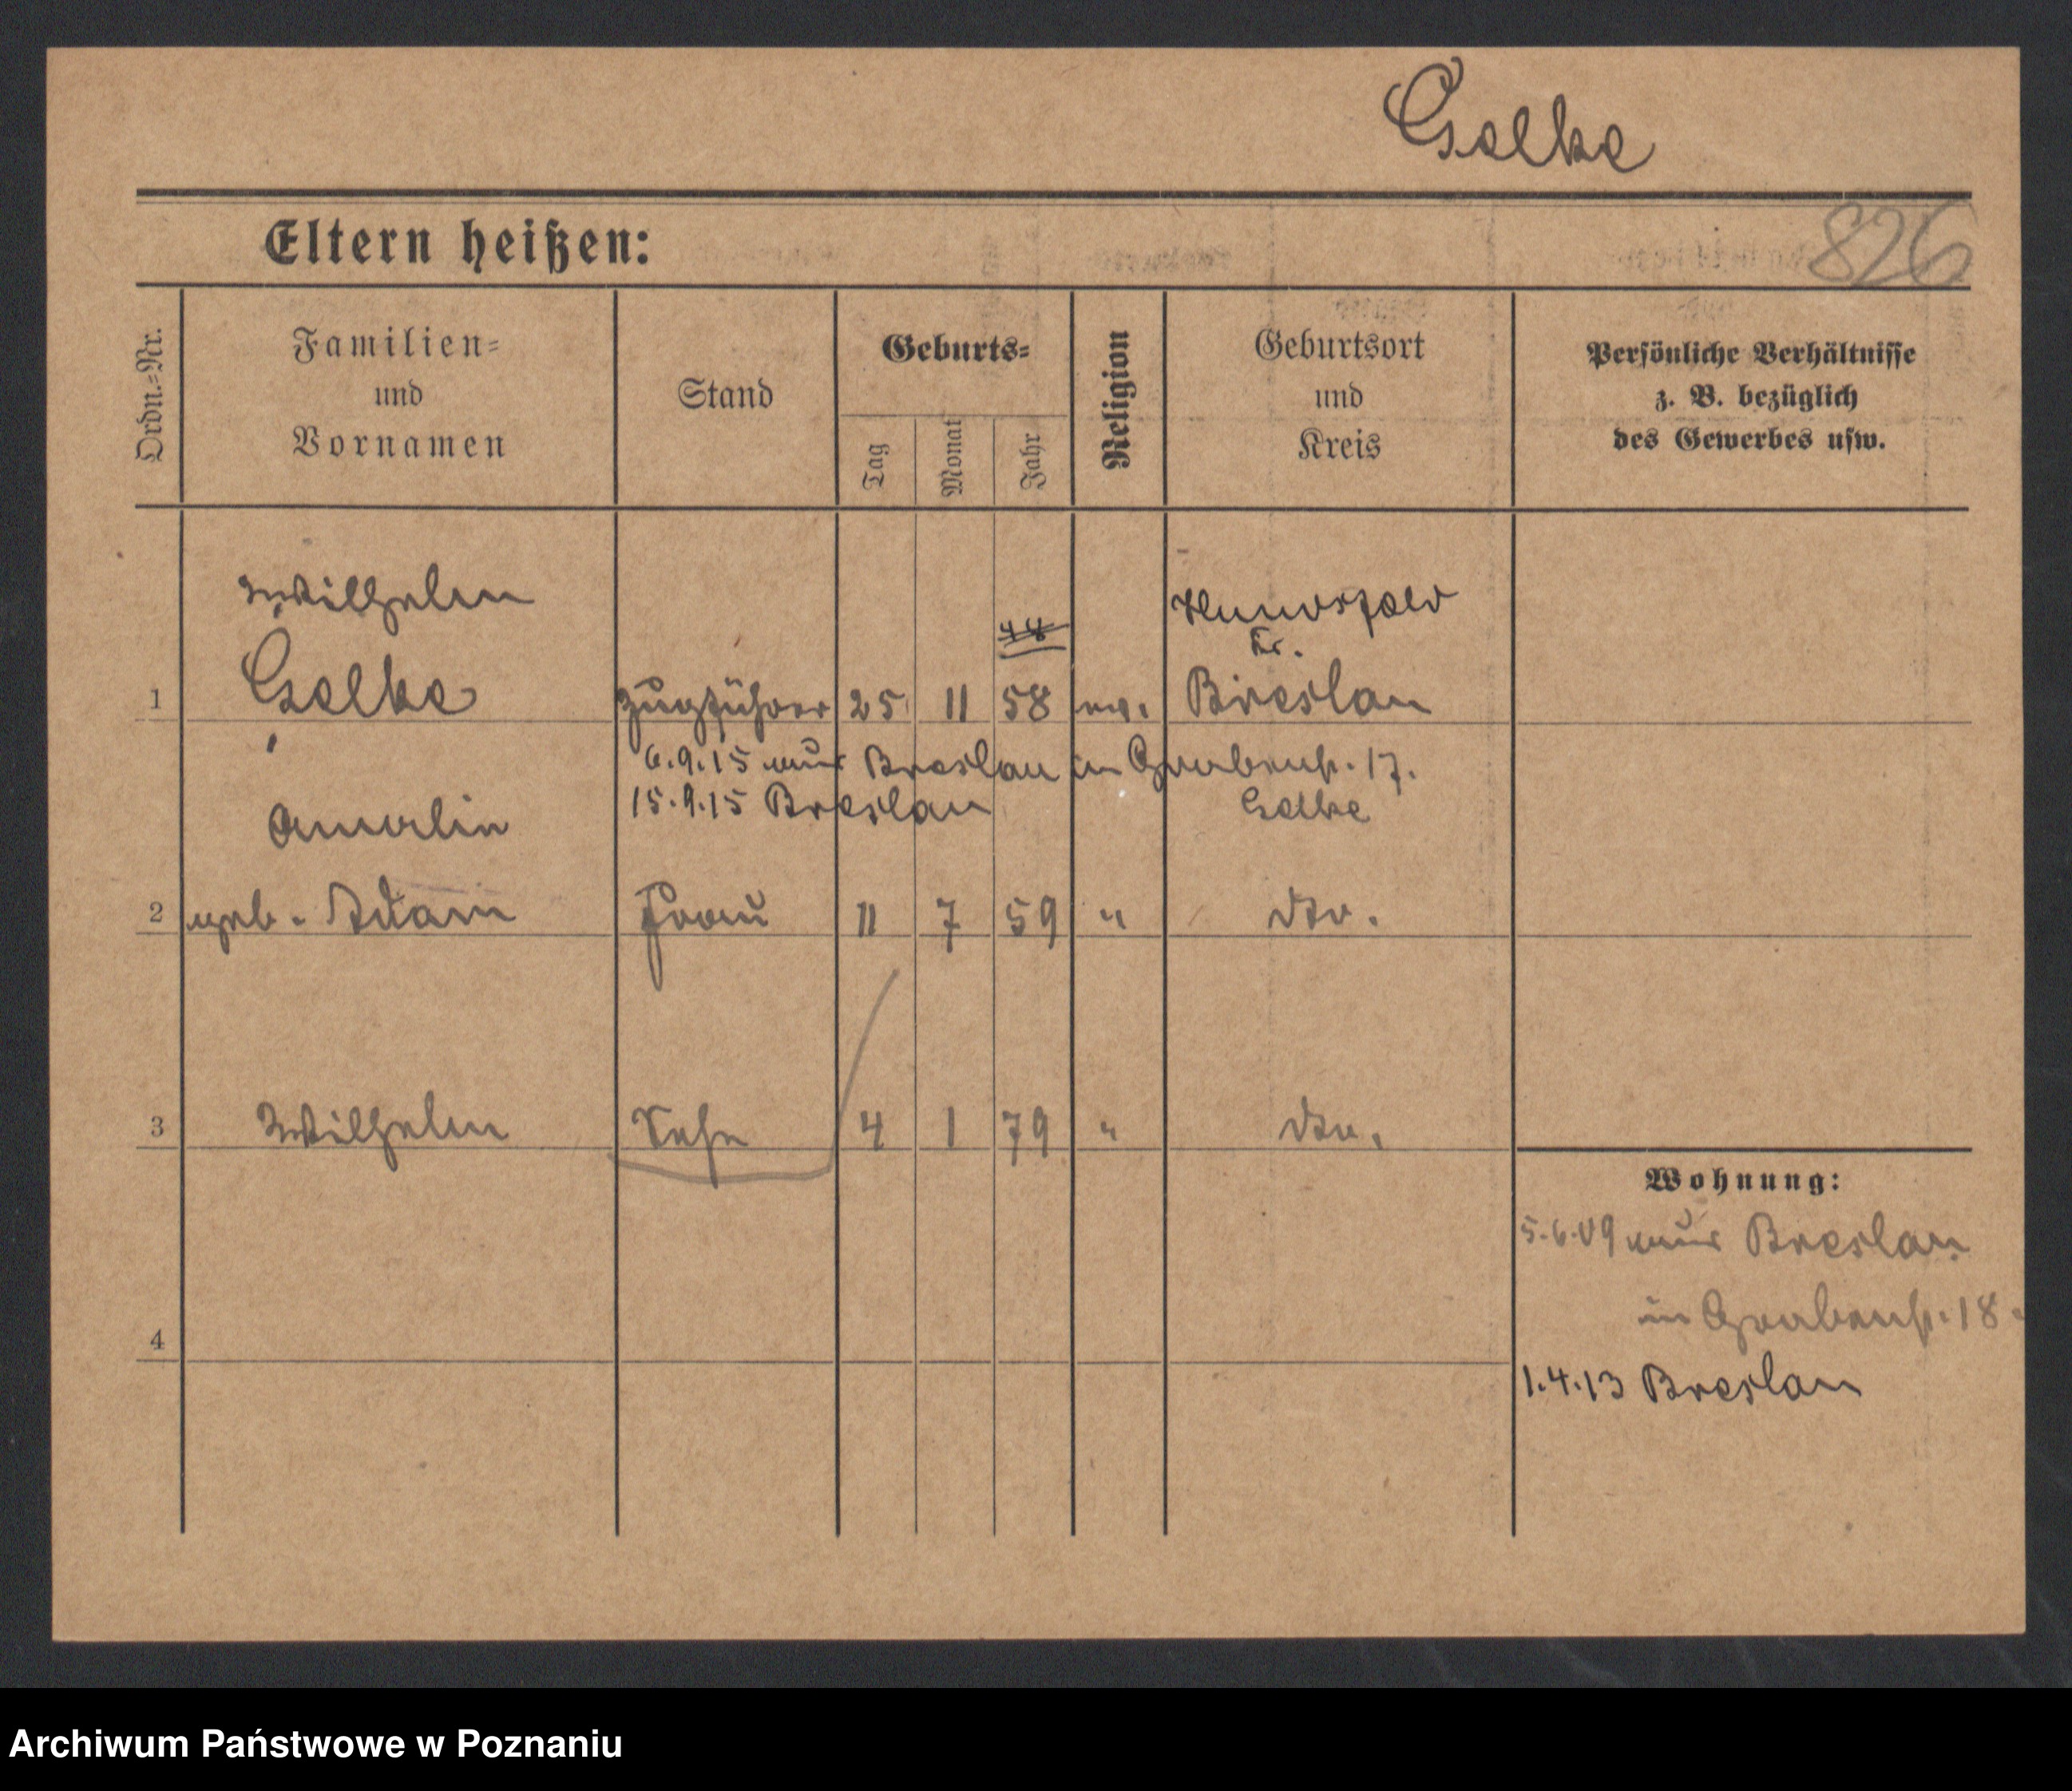 Gselke
Eltern heißen:
826
Ordn.-Nr.
Familien-
und
Vornamen
Stand
Geburts-
Tag
Monat
Jahr
Religion
Geburtsort
und
Kreis
Persönliche Verhältnisse
z. B. bezüglich
des Gewerbes usw.
Wilhelm
44
Kr.
1 Gselke Zugführer 25 11 58 ev. Breslau
6.9.15 aus Breslau in Grabenstr. 17.
15.9.15 Breslau Gselke
Amalie
2 geb. Adam Frau 11 7 59 " do.
3 Wilhelm Sohn 4 1 79 " do.
Wohnung:
5.6.09 aus Breslau
in Grabenstr. 18.
4
1.4.13 Breslau
Archiwum Państwowe w Poznaniu